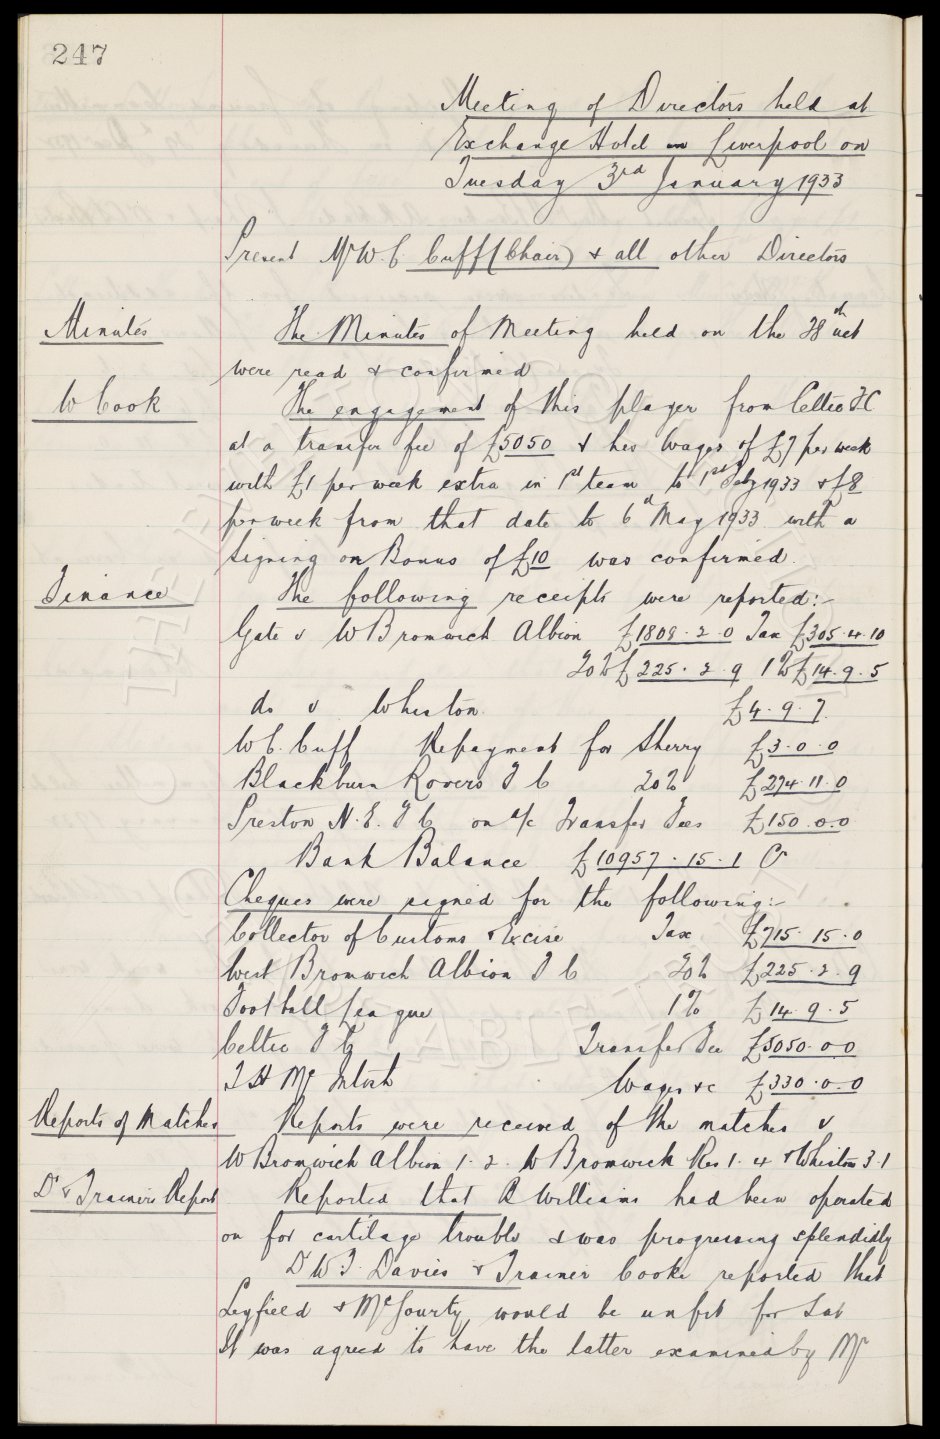 247
Meeting of Directors held at
Exchange Hotel Liverpool on
Tuesday 3rd January 1933
Present Mr W. C. Cuff (Chair) & all other Directors
Minutes
The Minutes of Meeting held on the 28th ult
were read & confirmed
W Cook
The engagement of this player from Celtic FC
at a transfer fee of £5050 & his Wages of £7 per week
with £1 per week extra in 1st team to 1st Feby 1933 & £8
per week from that date to 6th May 1933 with a
signing on Bonus of £10 was confirmed.
Finance
The following receipts were reported:-
Gate v W Bromwich Albion £1808.2.0 Tax £305.4.10
20% £225.2.9 1% £14.9.5
do v Whiston. £4.9.7.
W C. Cuff Repayment for Sherry £3.0.0
Blackburn Rovers F C 20% £274.11.0
Preston N. E. F C on a/c Transfer Fees £150.0.0
Bank Balance £10957.15.1 Cr
Cheques were signed for the following:-
Collector of Customs & Excise Tax £715.15.0
West Bromwich Albion F C 20% £225.2.9
Football League 1% £14.9.5
Celtic F C Transfer Fee £5050.0.0
T H Mc Intosh Wages &c £330.0.0
Reports of Matches
Reports were received of the matches v
W Bromwich Albion 1.2. W Bromwich Res 1.4 & Whiston 3.1
Dr & Trainers Report
Reported that B Williams had been operated
on for cartilage trouble & was progressing splendidly
Dr W. F. Davies & Trainer Cooke reported that
Leyfield & McGourty would be unfit for Sat
It was agreed to have the latter examined by Mr